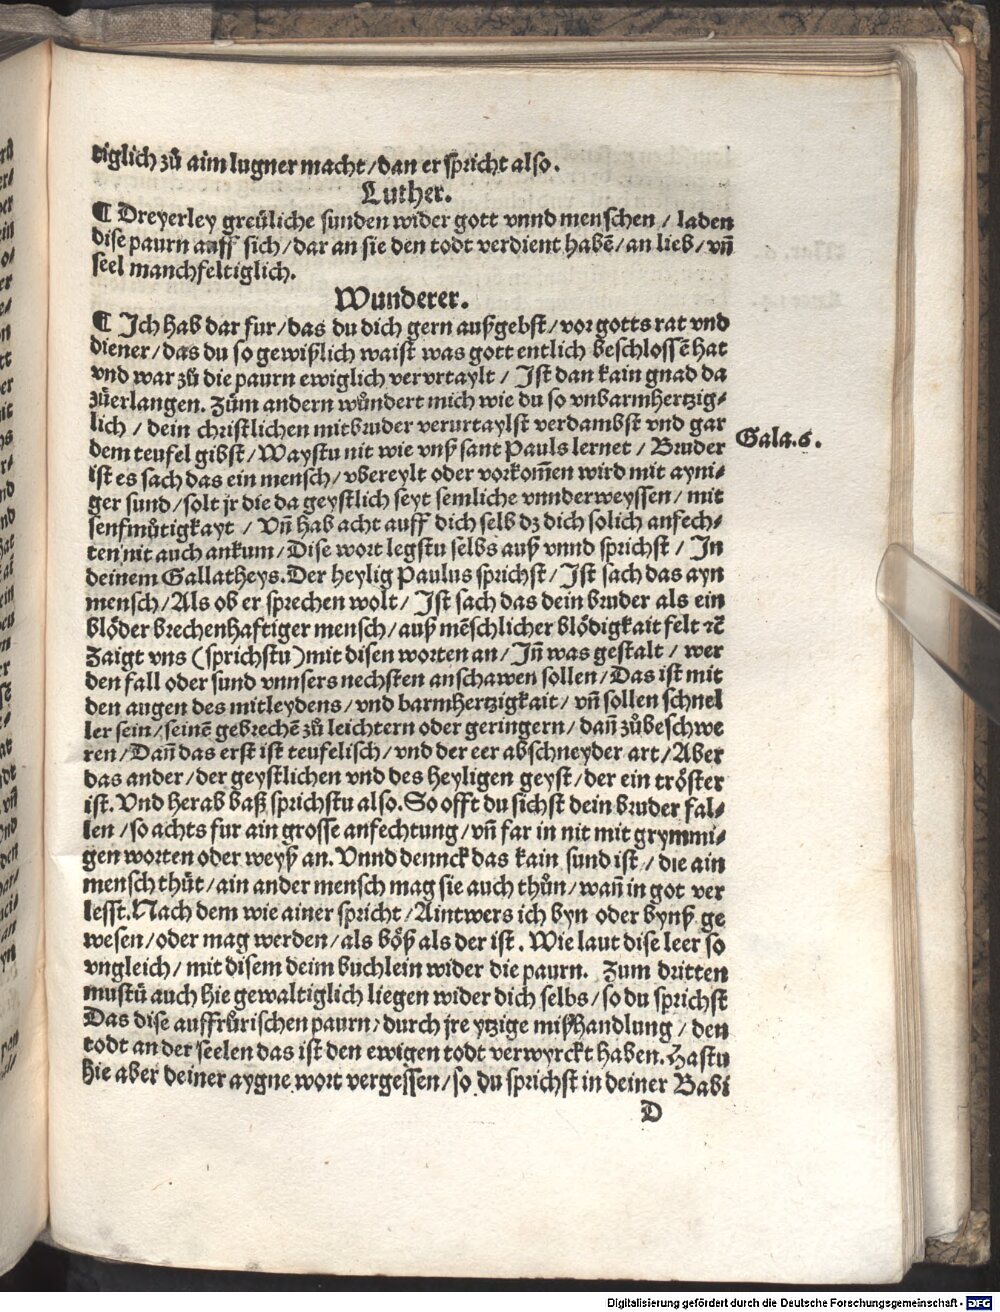 tiglich zů aim lugner macht / dan er spricht also.
Luther.
¶ Dreyerley greüliche sunden wider gott vnnd menschen / laden
dise paurn auff sich / dar an sie den todt verdient habē / an lieb / vñ
seel manchfeltiglich.
Wunderer.
¶ Ich hab dar fur / das du dich gern außgebst / vor gotts rat vnd
diener / das du so gewißlich waist was gott entlich beschlossē hat
vnd war zů die paurn ewiglich vervrtaylt / Ist dan kain gnad da
zůerlangen. Zům andern wůndert mich wie du so vnbarmhertzig⸗
lich / dein christlichen mitbruder verurtaylst verdambst vnd gar
dem teufel gibst / Waystu nit wie vnß sant Pauls lernet / Bruder
Gala.6.
ist es sach das ein mensch / vbereylt oder vorkom̄en wird mit ayni⸗
ger sund / solt jr die da geystlich seyt semliche vnnderweyssen / mit
senfmůtigkayt / Vñ hab acht auff dich selb dz dich solich anfech⸗
ten nit auch ankum / Dise wort legstu selbs auß vnnd sprichst / In
deinem Gallatheys. Der heylig Paulus sprichst / Ist sach das ayn
mensch / Als ob er sprechen wolt / Ist sach das dein bruder als ein
blöder brechenhaftiger mensch / auß mēschlicher blödigkait felt ⁊c̄
Zaigt vns (sprichstu) mit disen worten an / Iñ was gestalt / wer
den fall oder sund vnnsers nechsten anschawen sollen / Das ist mit
den augen des mitleydens / vnd barmhertzigkait / vñ sollen schnel
ler sein / seinē gebrechē zů leichtern oder geringern / dañ zůbeschwe
ren / Dañ das erst ist teufelisch / vnd der eer abschneyder art / Aber
das ander / der geystlichen vnd des heyligen geyst / der ein tröster
ist. Vnd herab baß sprichstu also. So offt du sichst dein bruder fal⸗
len / so achts fur ain grosse anfechtung / vñ far in nit mit grymmi⸗
gen worten oder weyß an. Vnnd dennck das kain sund ist / die ain
mensch thůt / ain ander mensch mag sie auch thůn / wañ in got ver
lesst. Nach dem wie ainer spricht / Aintwers ich byn oder bynß ge
wesen / oder mag werden / als böß als der ist. Wie laut dise leer so
vngleich / mit disem deim buchlein wider die paurn. Zum dritten
mustů auch hie gewaltiglich liegen wider dich selbs / so du sprichst
Das dise auffrůrischen paurn / durch jre ytzige mißhandlung / den
todt an der seelen das ist den ewigen todt verwyrckt haben. Hastu
hie aber deiner aygne wort vergessen / so du sprichst in deiner Babi
D
Digitalisierung gefördert durch die Deutsche Forschungsgemeinschaft - DFG